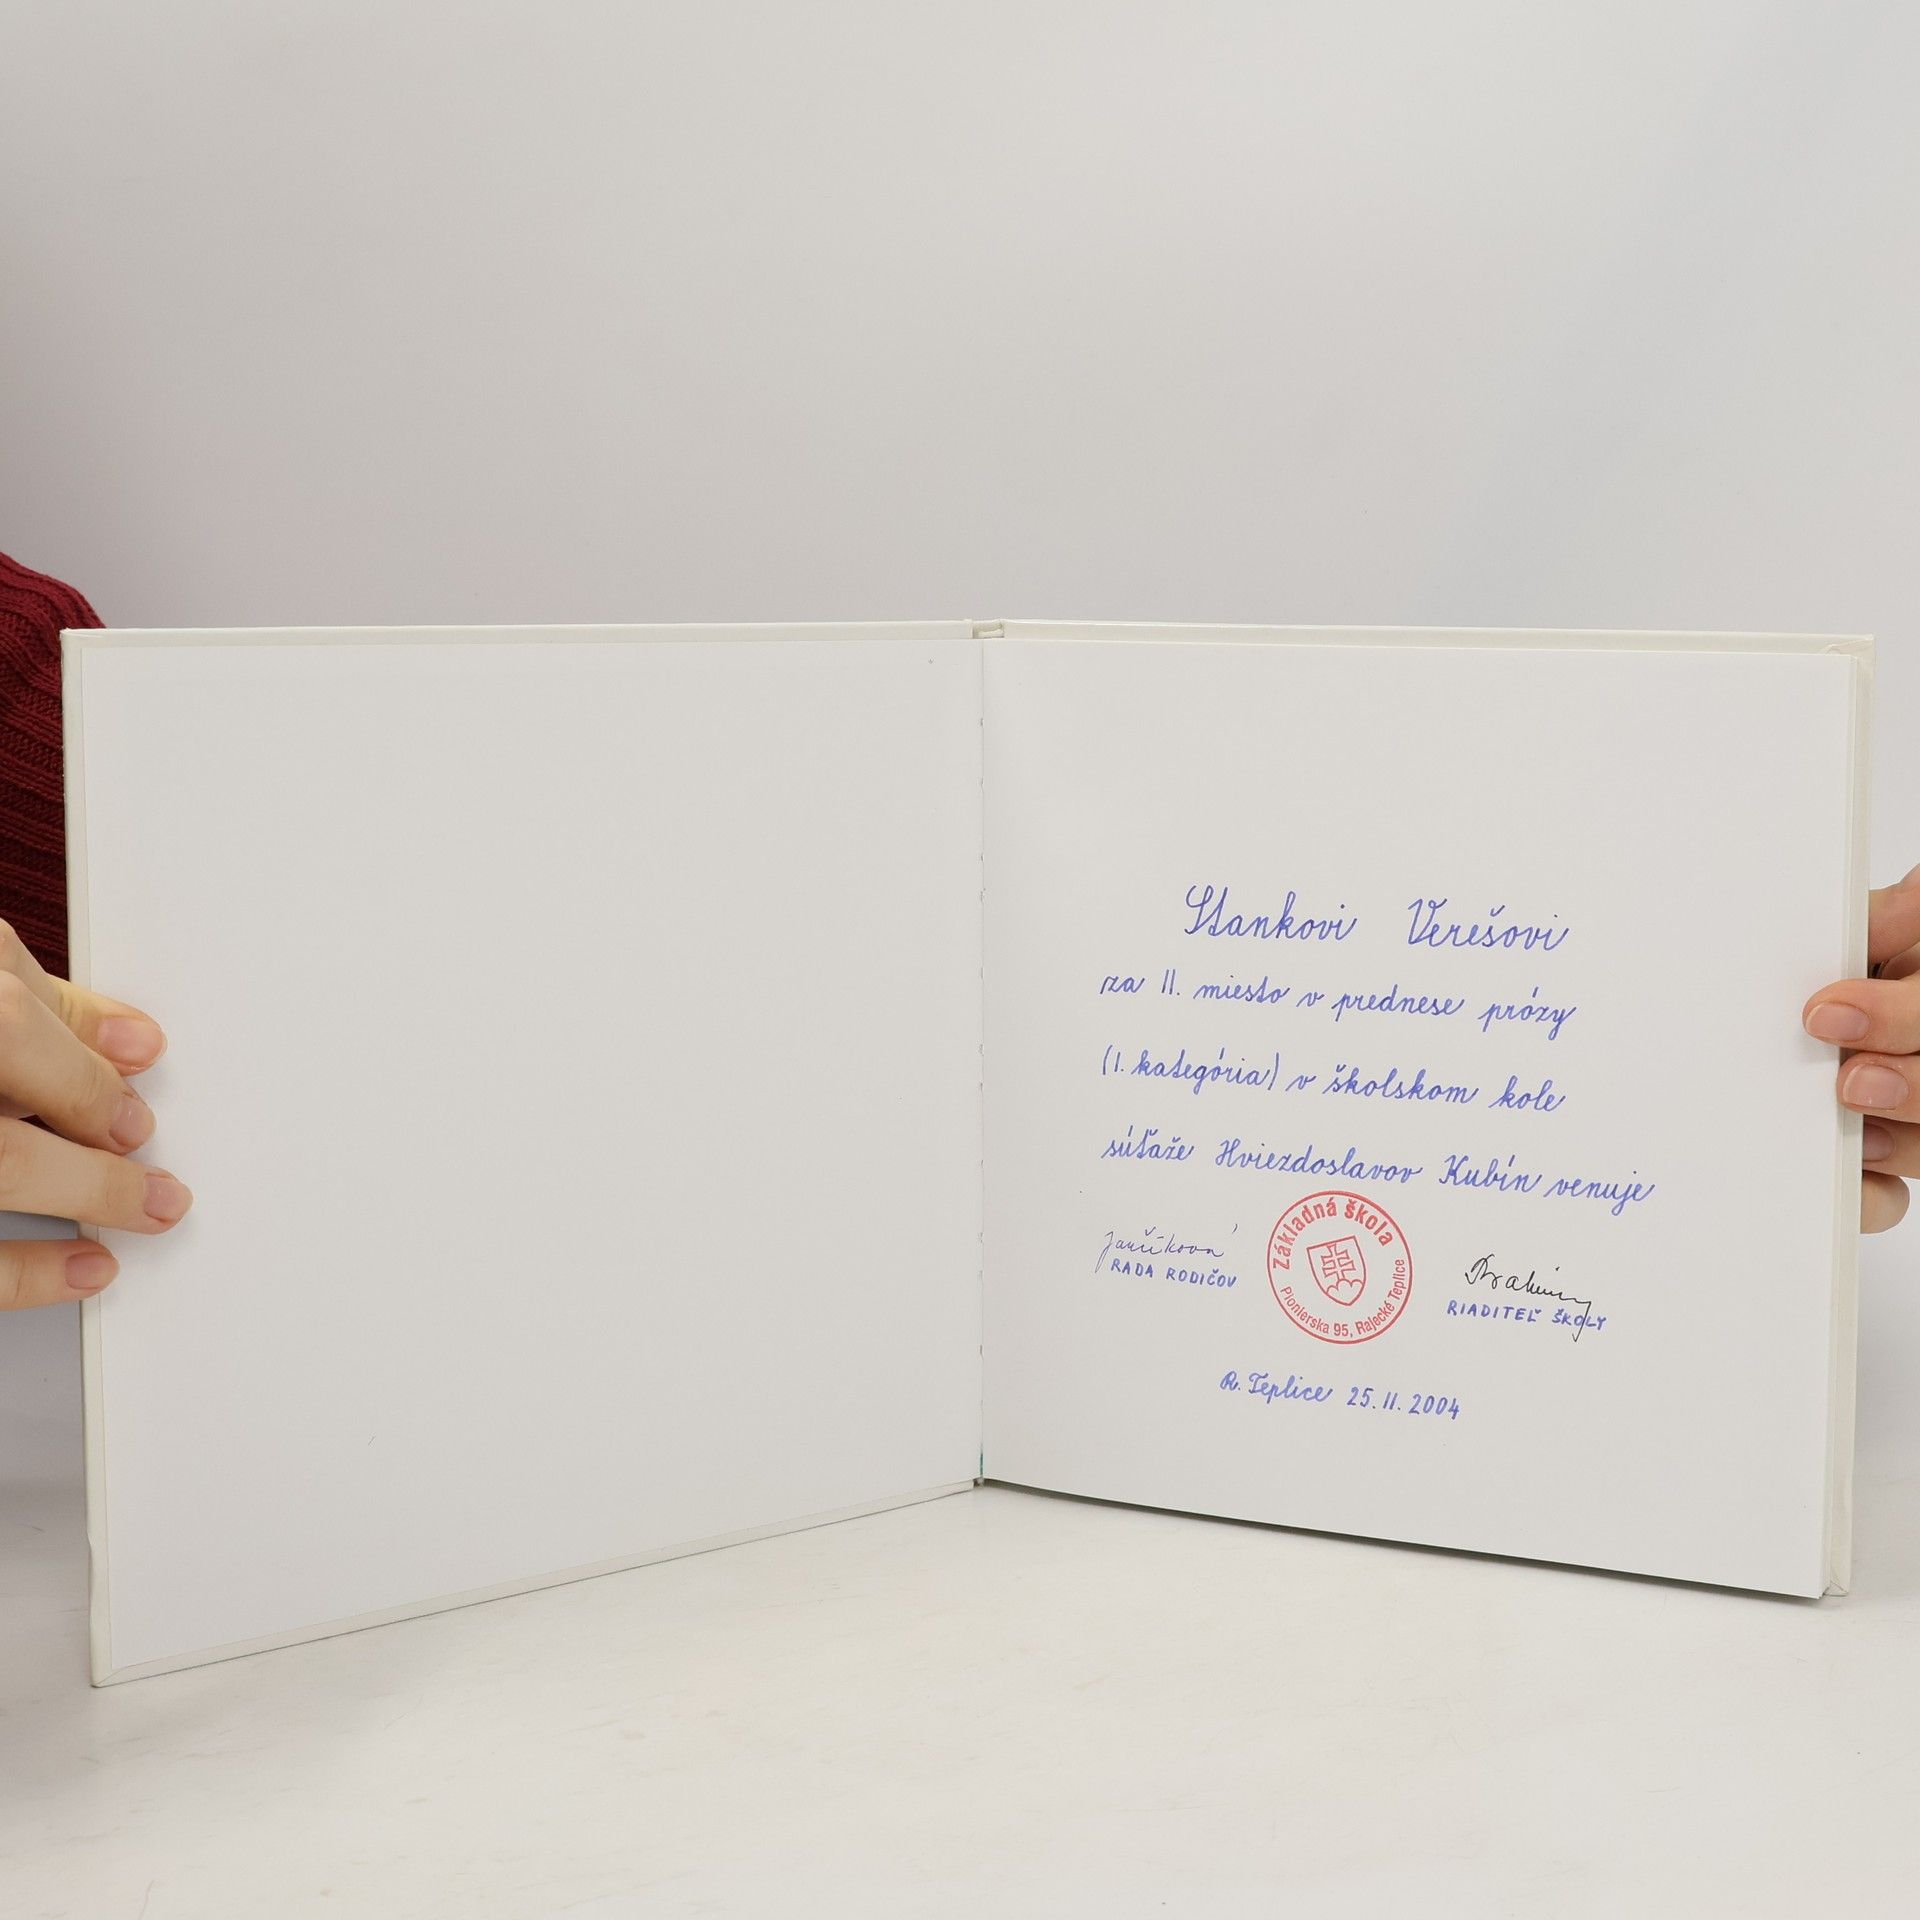 Stankovi Verešovi
za II. miesto v prednese prózy
(I. kategória) v školskom kole
súťaže Hviezdoslavov Kubín venuje
Jančíková
RADA RODIČOV
Základná škola
Pionierska 95, Rajecké Teplice
RIADITEĽ ŠKOLY
R. Teplice 25.11.2004